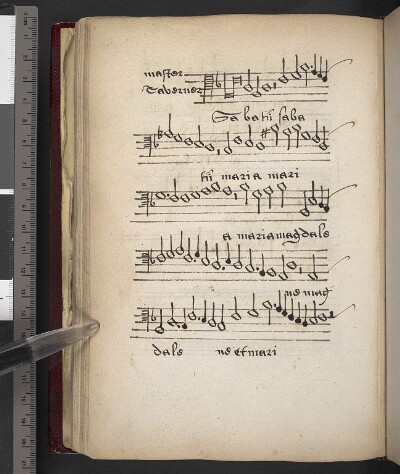 master
Taverner
Sa batū saba
tū maria mari
a mariamagdale
ne mag
dale ne et mari